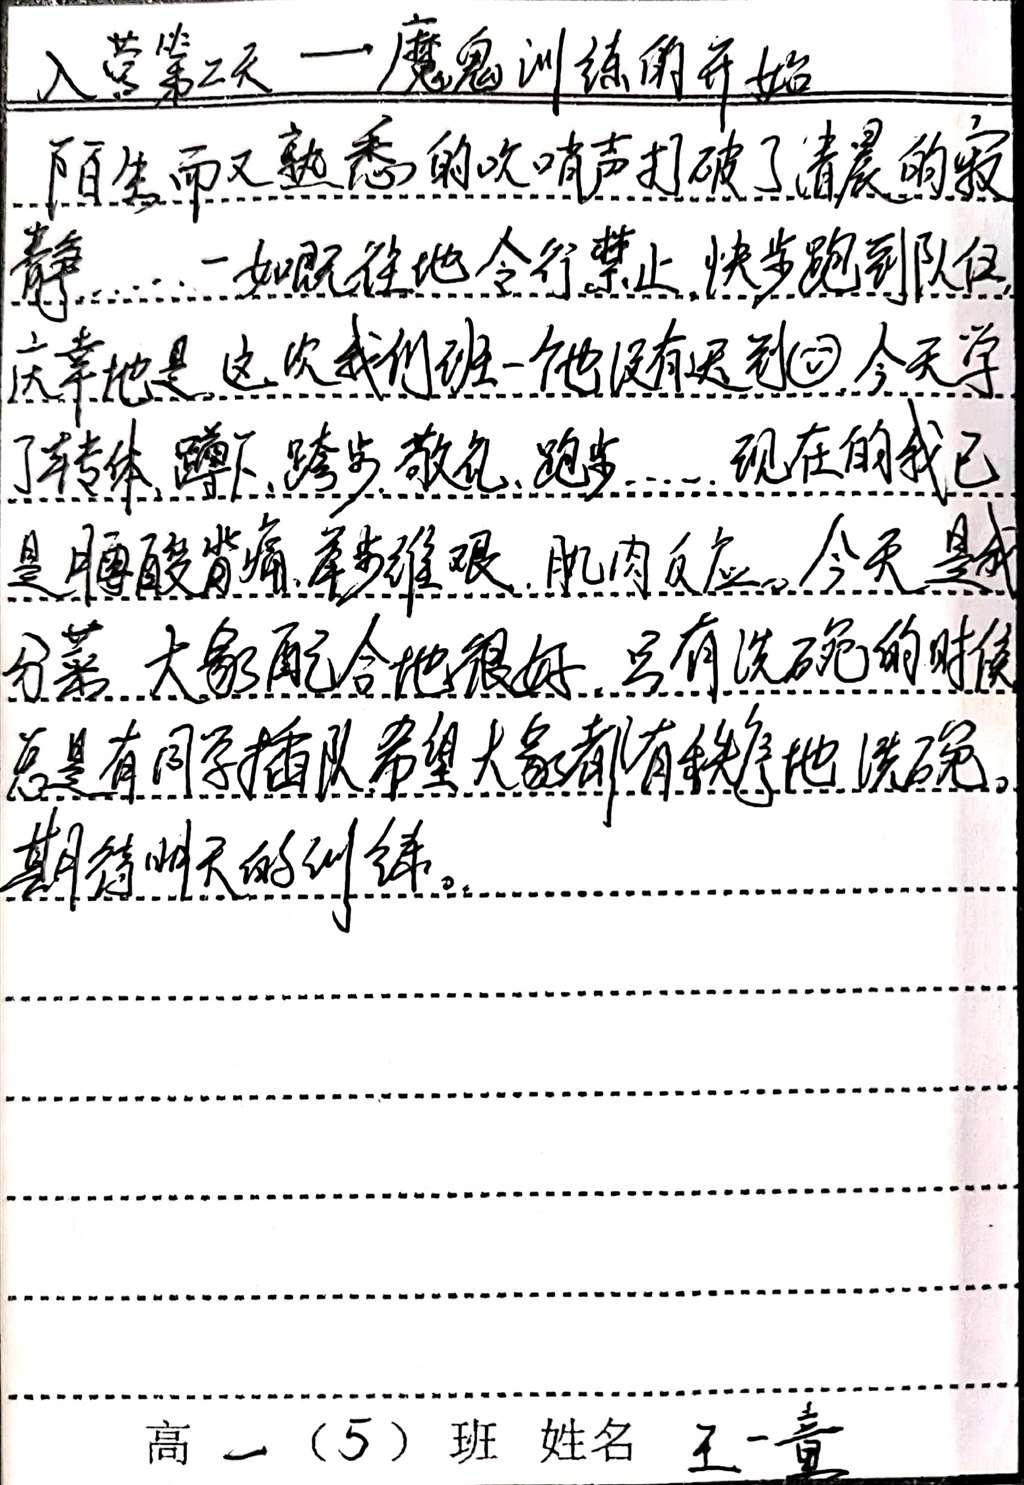 入营第二天 — 魔鬼训练的开始
陌生而又熟悉的吹哨声打破了清晨的寂
静……一如既往地令行禁止,快步跑到队伍,
庆幸地是,这次我们班一个也没有迟到,今天学
了转体、蹲下、跨步、敬礼、跑步……现在的我已
是腰酸背痛、举步维艰、肌肉反应。今天是我
分菜,大家配合地很好,只有洗碗的时侯
总是有同学插队,希望大家都有秩序地洗碗。
期待明天的训练。
高一(5)班 姓名 王一章